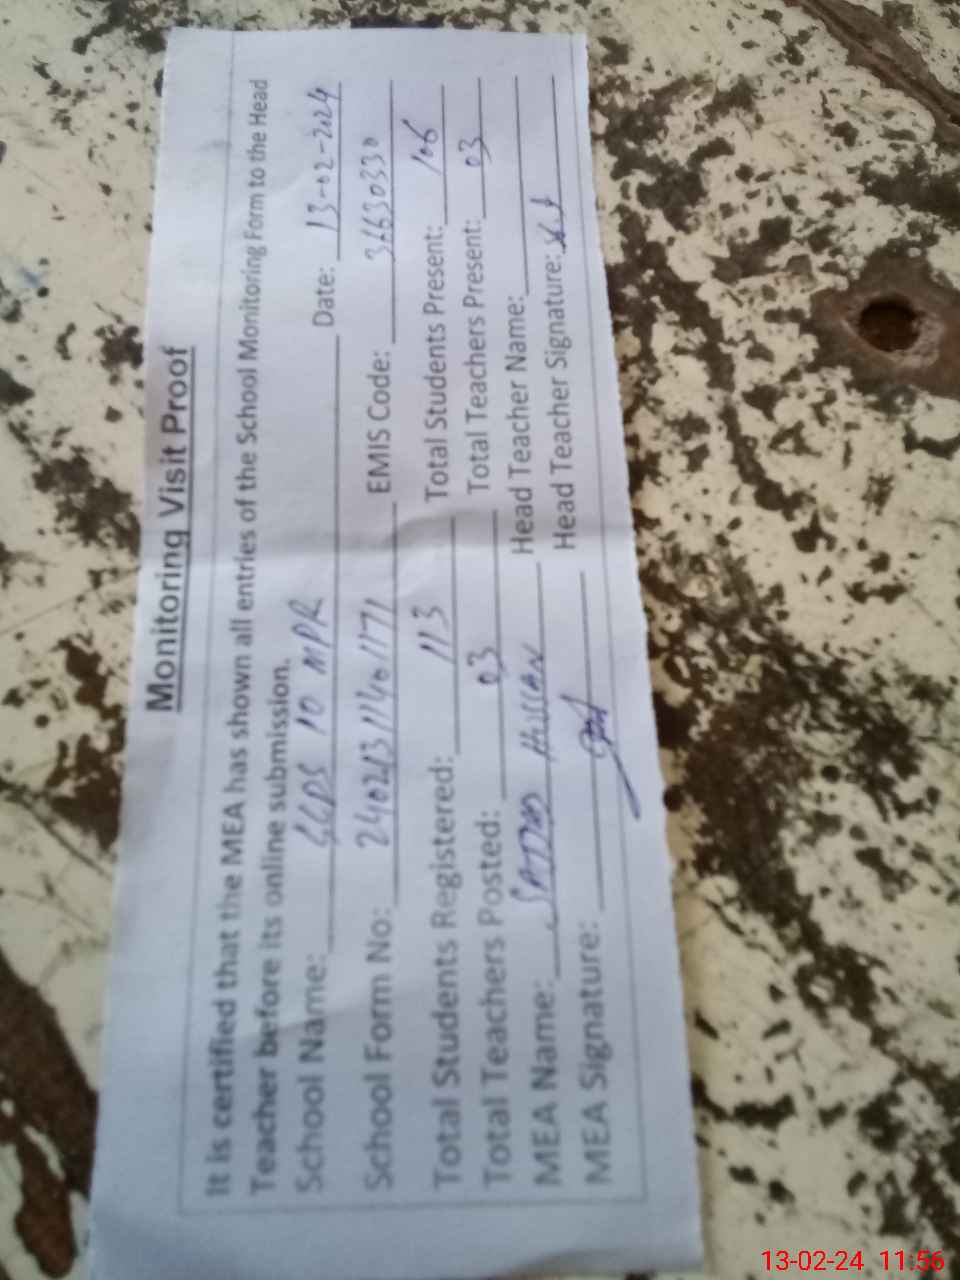 Monitoring Visit Proof
It is certified that the MEA has shown all entries of the School Monitoring Form to the Head
Teacher before its online submission.
School Name: GGPS 10 MPR Date: 13-02-2024
School Form No: 24021311401171 EMIS Code: 36630330
Total Students Registered: 113 Total Students Present: 106
Total Teachers Posted: 03 Total Teachers Present: 03
MEA Name: HUSSAN Head Teacher Name:
MEA Signature: Head Teacher Signature:
13-02-24 11:56